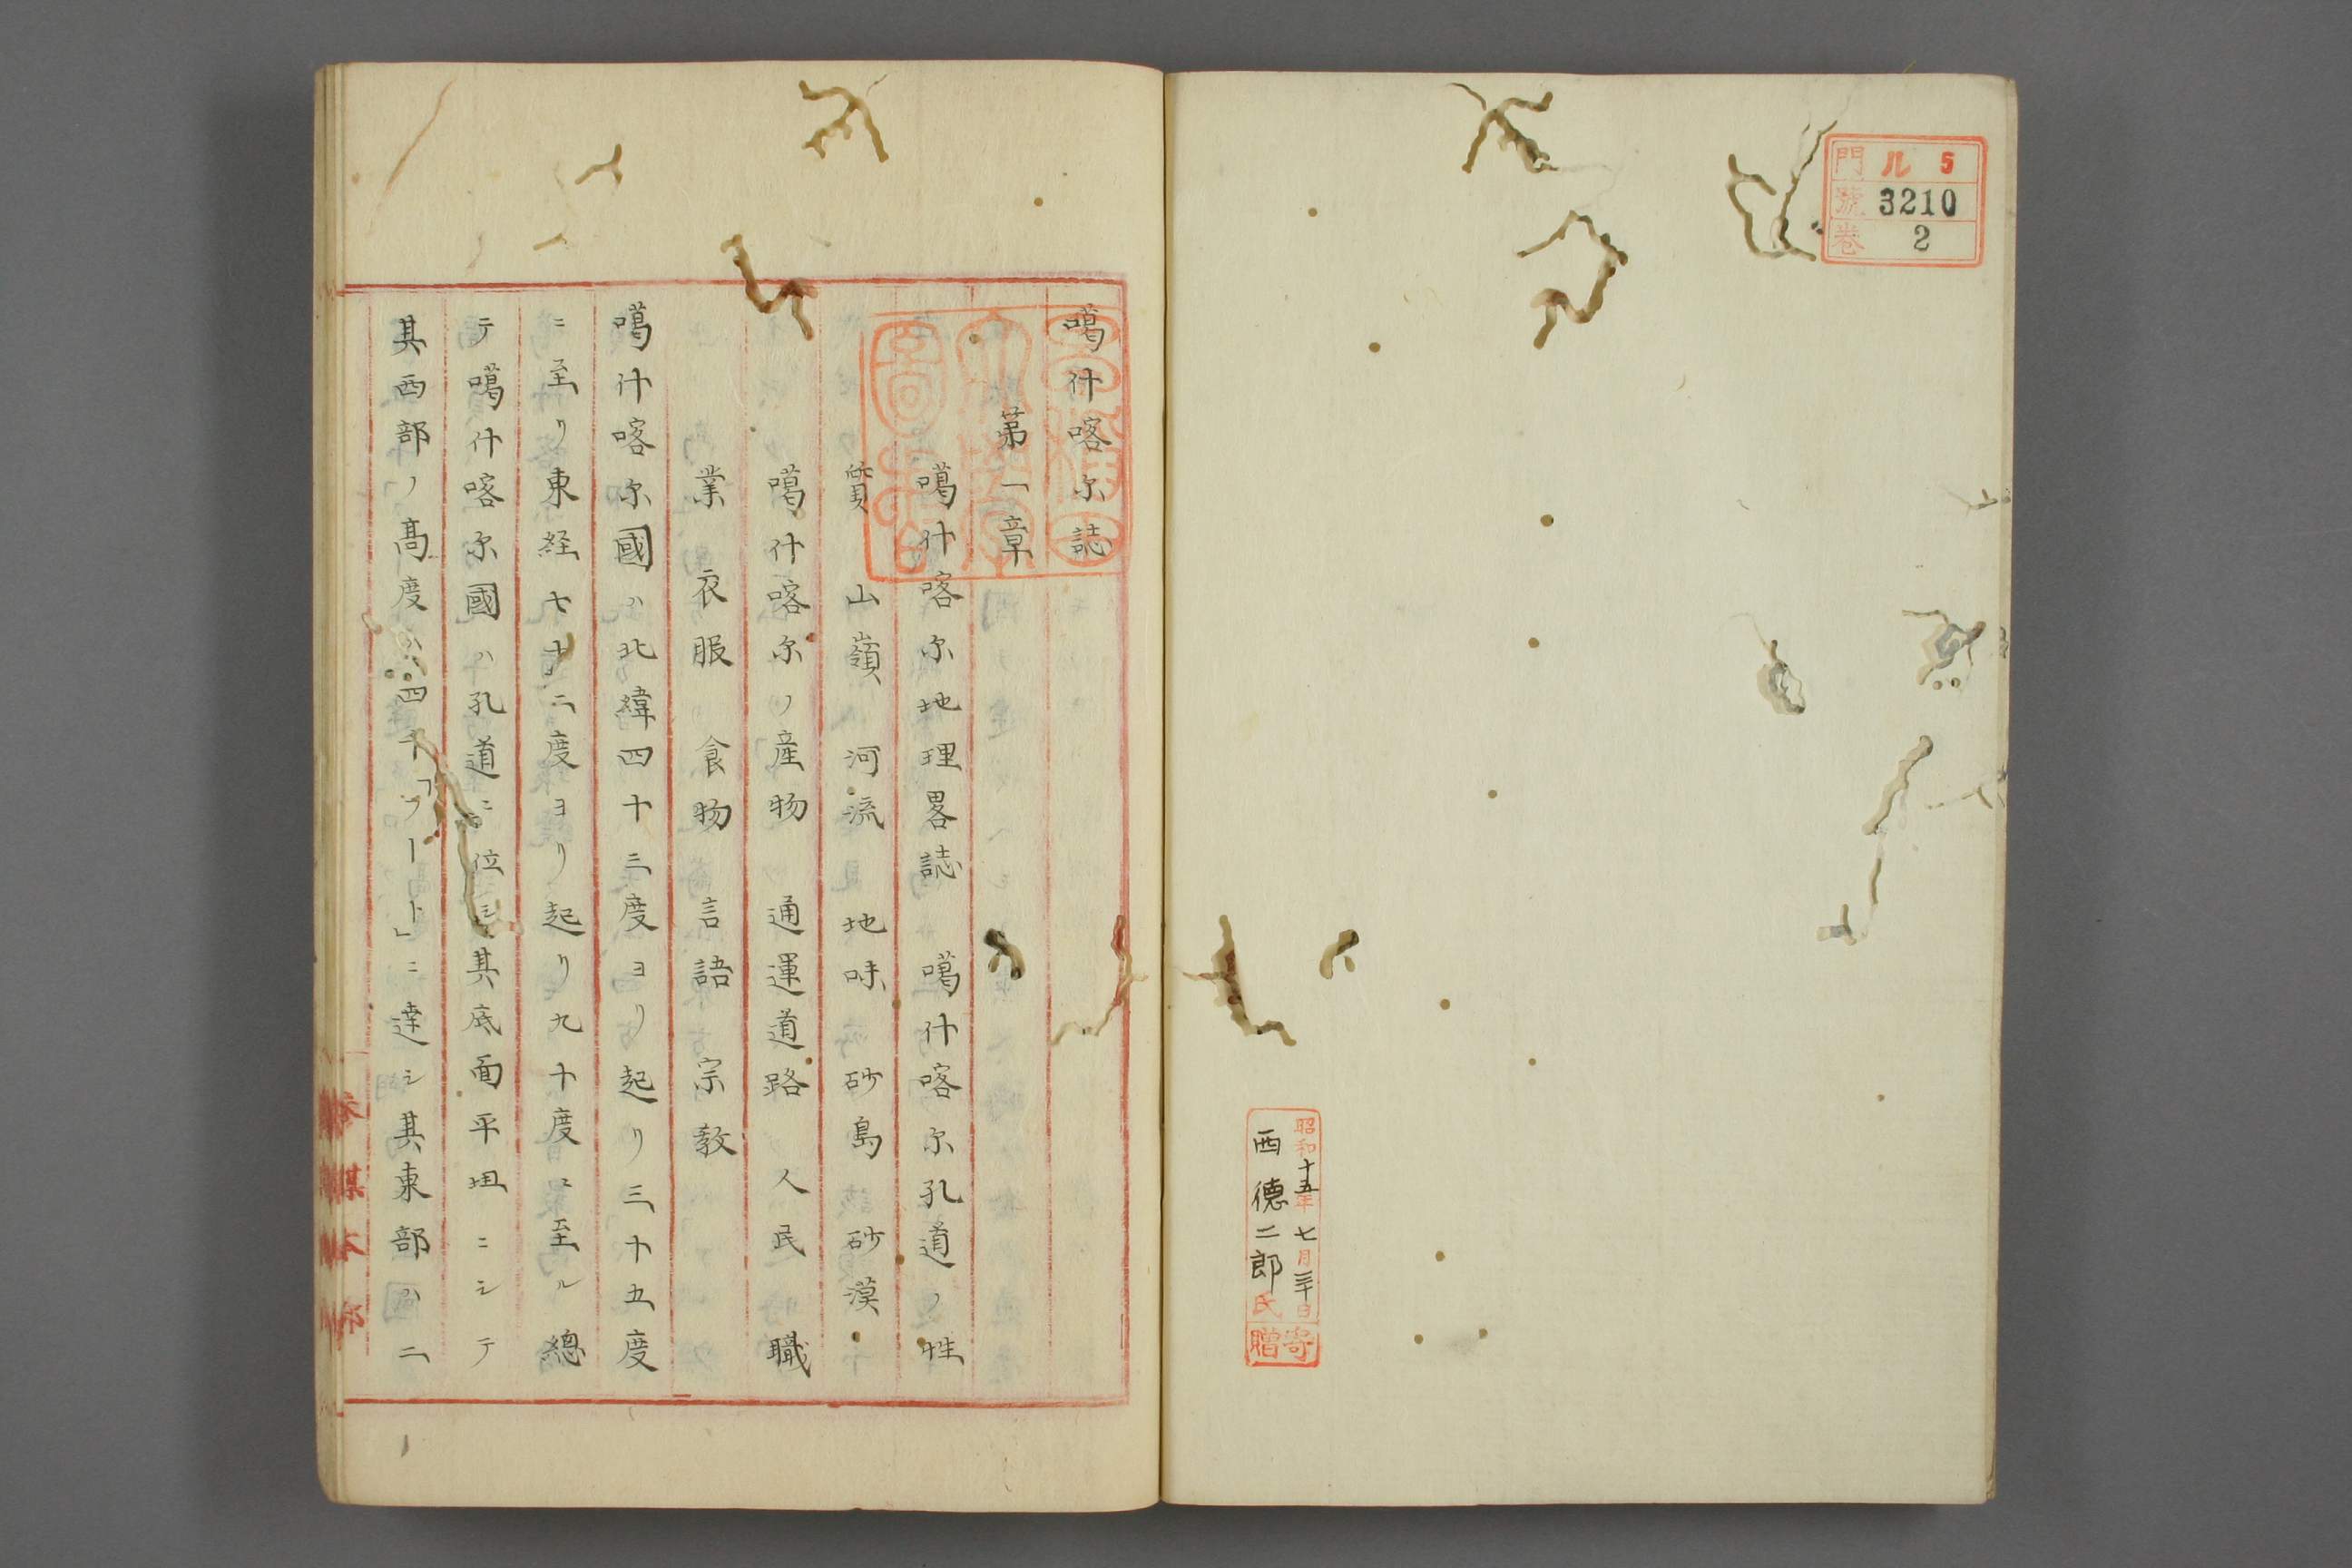 門 ル 5
號 3210
卷 2
昭和十五年七月三十日
西德二郎氏
寄贈
噶什喀尔誌
第一章
噶什喀尔地理畧誌 噶什喀尔孔道ノ性
質 山嶺 河流 地味 砂島 砂漠
噶什喀尔ノ産物 通運道路 人民 職
業 衣服 食物 言語 宗教
噶什喀尔國ハ北緯四十三度ヨリ起リ三十五度
ニ至リ東経七十二度ヨリ起リ九十度ニ至ル總
テ噶什喀尔國ハ孔道ニ位シ其底面平坦ニシテ
其西部ノ髙度ハ四千「フート」ニ達シ其東部ハ二
參謀本部